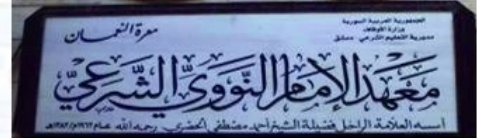 الجمهورية العربية السورية
وزارة الأوقاف
مديرية التعليم الشرعي - دمشق
معرة النعمان
معهد الإمام النووي الشرعي
أسسه العلامة الراحل فضيلة الشيخ أحمد مصطفى الحصري رحمه الله عام ١٩٦٣م/١٣٨٢هـ